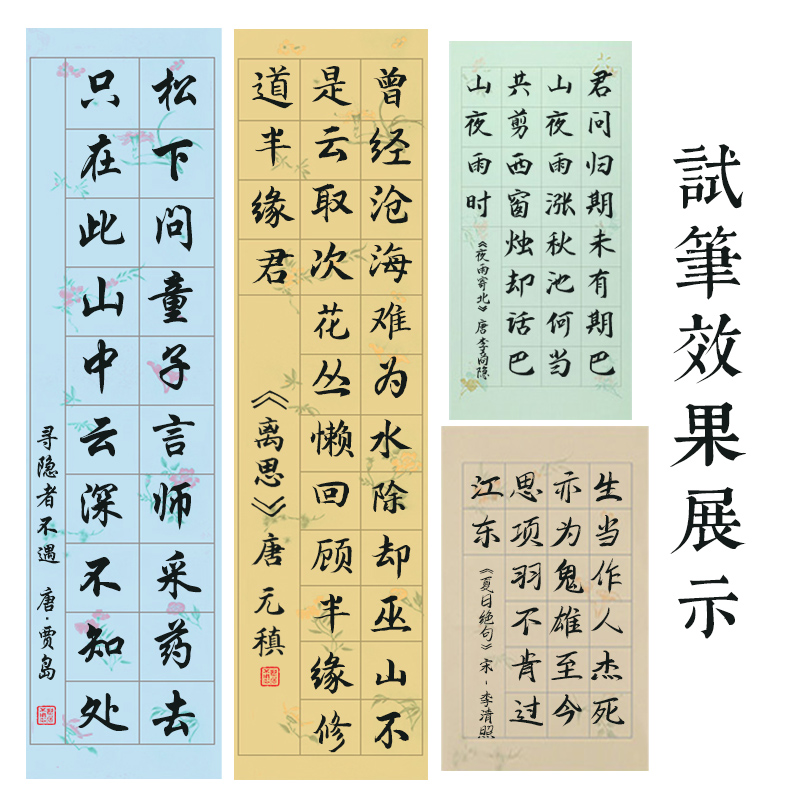 松下问童子言师采药去
只在此山中云深不知处
寻隐者不遇 唐·贾岛
曾经沧海难为水除却巫山不
是云取次花丛懒回顾半缘修
道半缘君
《离思》唐 元稹
君问归期未有期巴
山夜雨涨秋池何当
共剪西窗烛却话巴
山夜雨时
《夜雨寄北》唐 李商隐
生当作人杰死
亦为鬼雄至今
思项羽不肯过
江东
《夏日绝句》宋-李清照
試筆效果展示